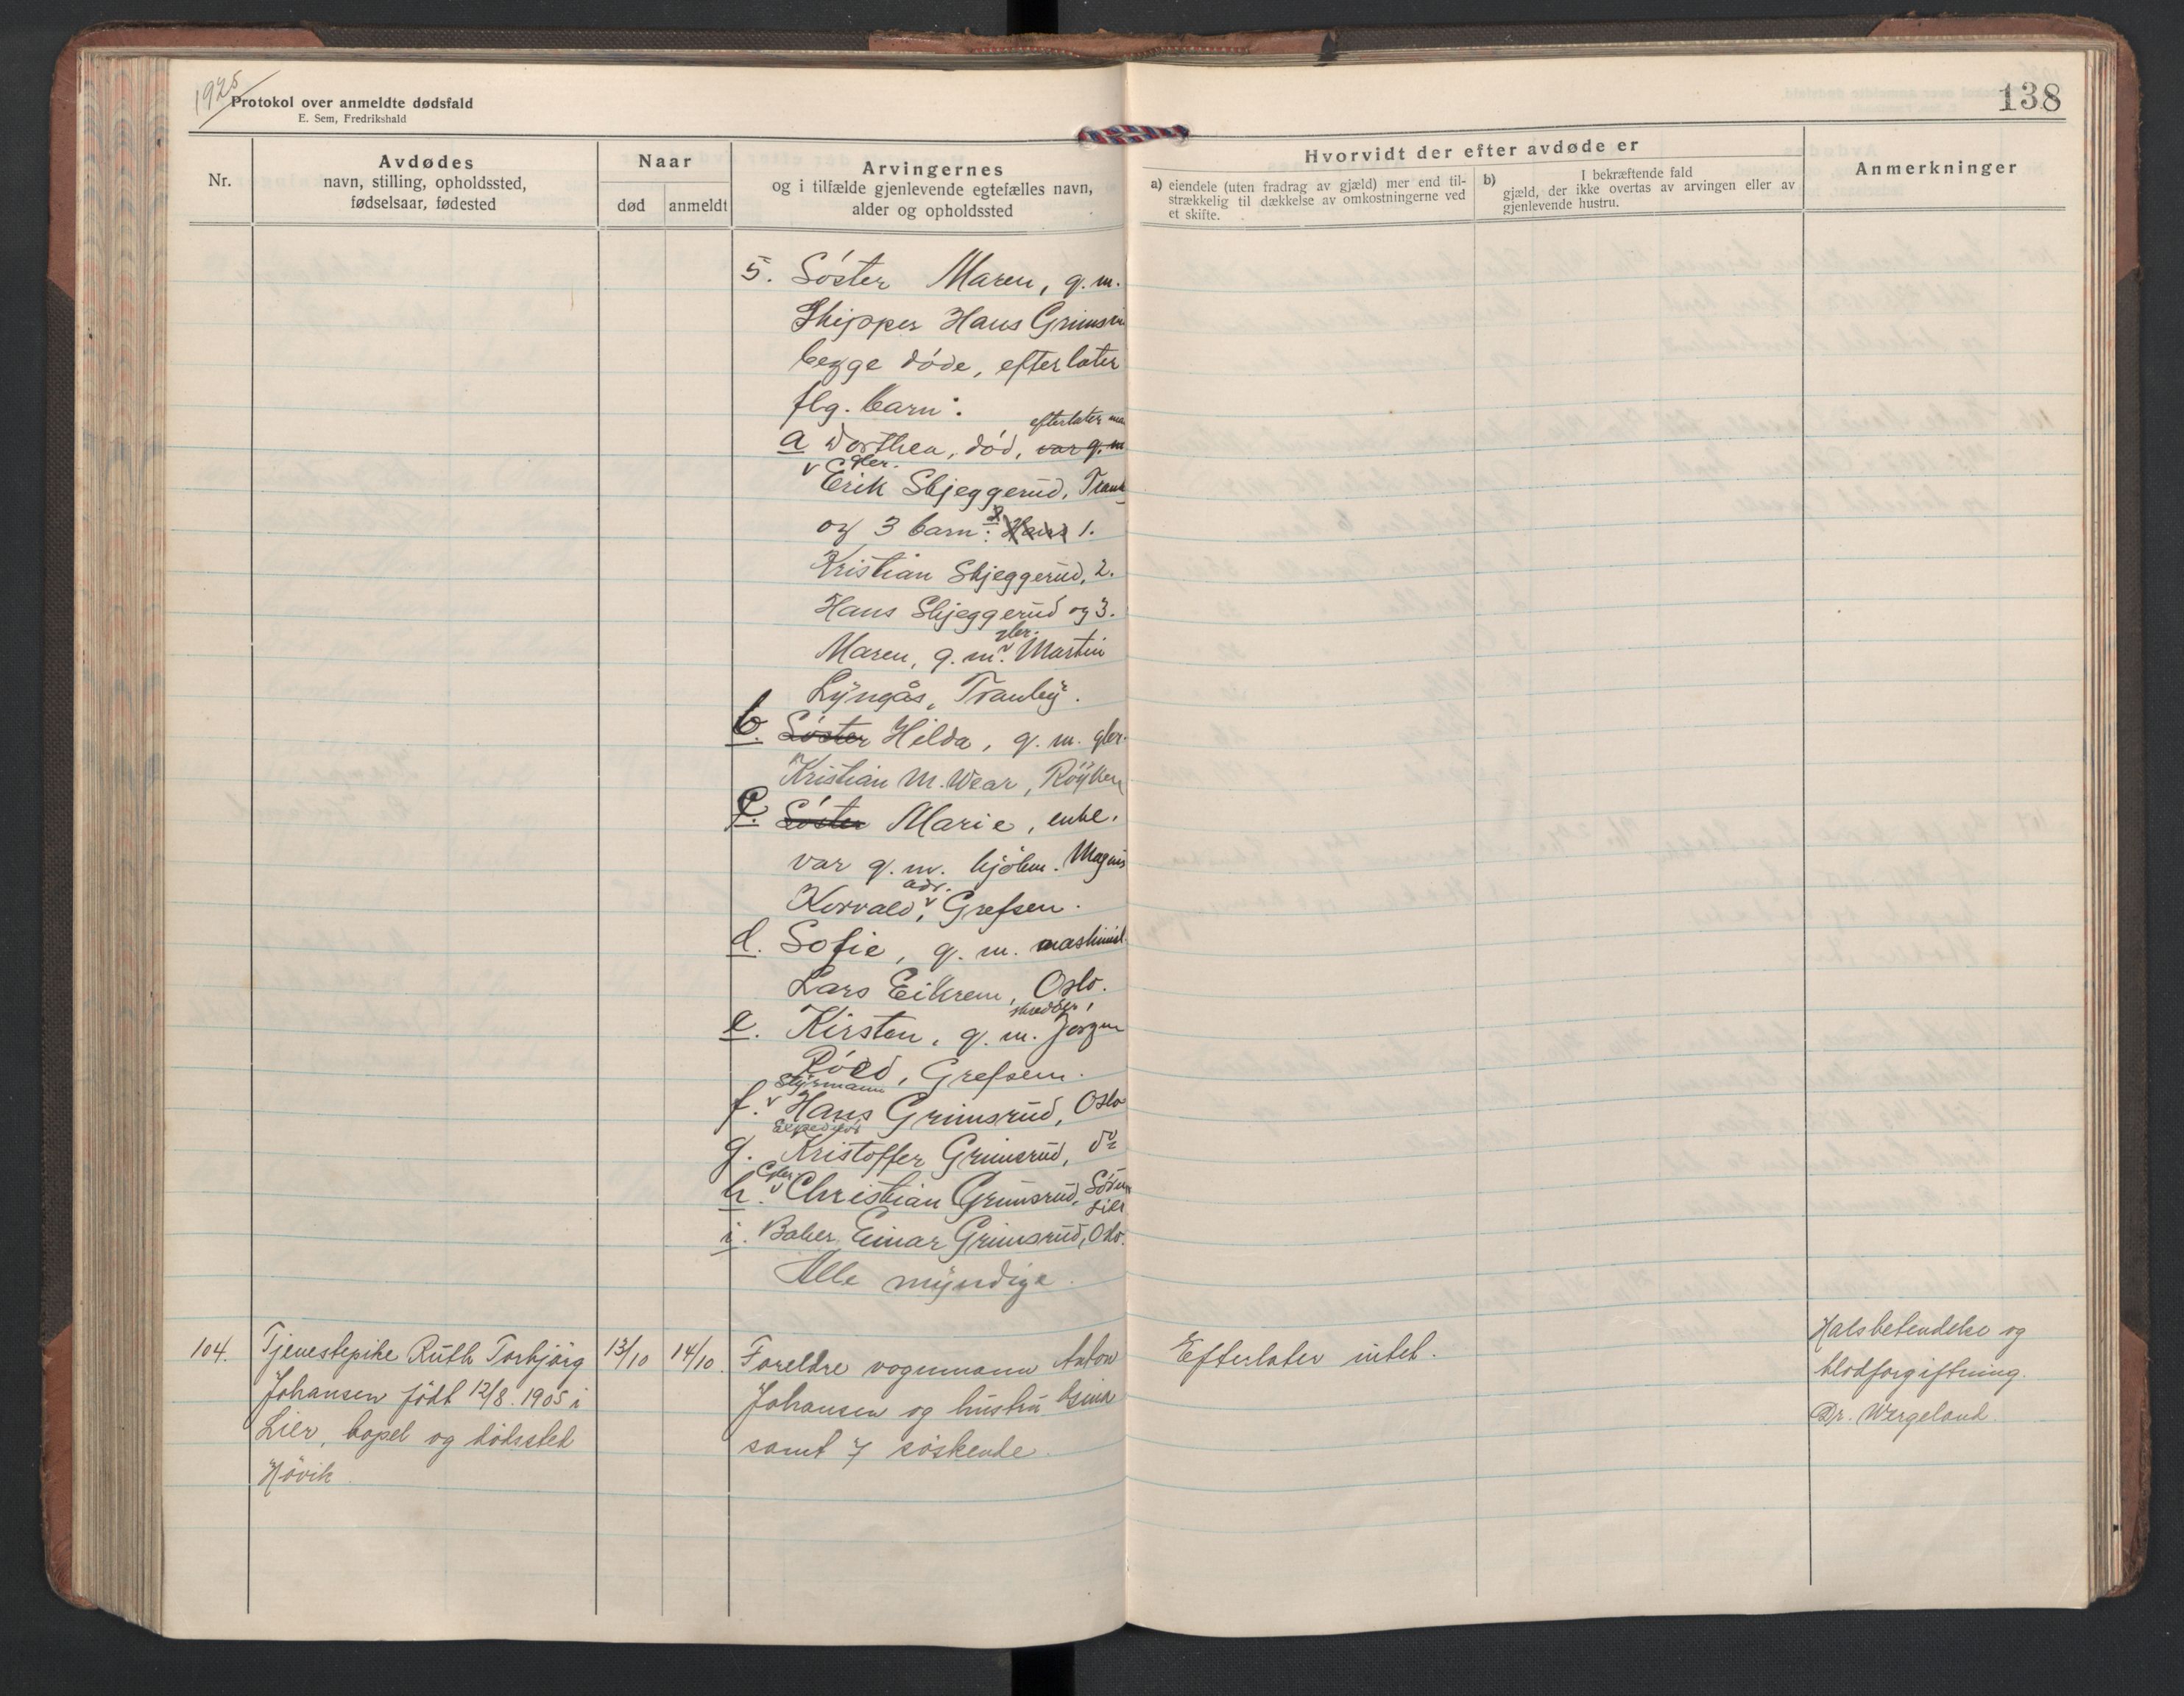 1925
Protokol over anmeldte dødsfald
E. Sem, Fredrikshald
138
Nr.
Avdødes
navn, stilling, opholdssted,
fødselsaar, fødested
Naar
død
anmeldt
Arvingernes
og i tilfælde gjenlevende egtefælles navn,
alder og opholdssted
Hvorvidt der efter avdøde er
a) eiendele (uten fradrag av gjæld) mer end til-
strækkelig til dækkelse av omkostningerne ved
et skifte.
b) I bekræftende fald
gjæld, der ikke overtas av arvingen eller av
gjenlevende hustru.
Anmerkninger
5. Søster Maren, g. m.
Skipper Hans
begge døde, efterlater
flg. barn:
efterlater
a Dorthea, død, var g. m
gbr.
Erik Skjeggerud,
og 3 barn: Hans 1.
Kristian Skjeggerud, 2.
Hans Skjeggerud og 3.
gbr.
Maren, g. m. Martin
Lyngås, Tranby.
b. Søster Hilda, g. m. gbr.
Kristian M. Wear, Røyken
c. Søster Marie, enke,
var g. m. kjøbm. Magnus
adr.
Korvald, Grefsen.
d. Sofie, g. m. maskinist
Lars Eikrem, Oslo.
skredder
e. Kirsten, g. m. Jørgen
Røed, Grefsen.
Styrmann
f. Hans Grimsrud, Oslo
Expeditør
g. Kristoffer Grimsrud, do
Gbr.
h. Christian Grimsrud,
Lier
i. Baker Einar Grimsrud, Oslo.
Alle myndige.
104. Tjenestepike Ruth Torbjørg
Johansen født 12/8. 1905 i
Lier, bopel og dødssted
Høvik.
13/10
14/10.
Foreldre vognmann Anton
Johansen og hustru
samt 7 søskende.
Efterlater intet.
Halsbetendelse og
blodforgiftning.
Dr. Wergeland.